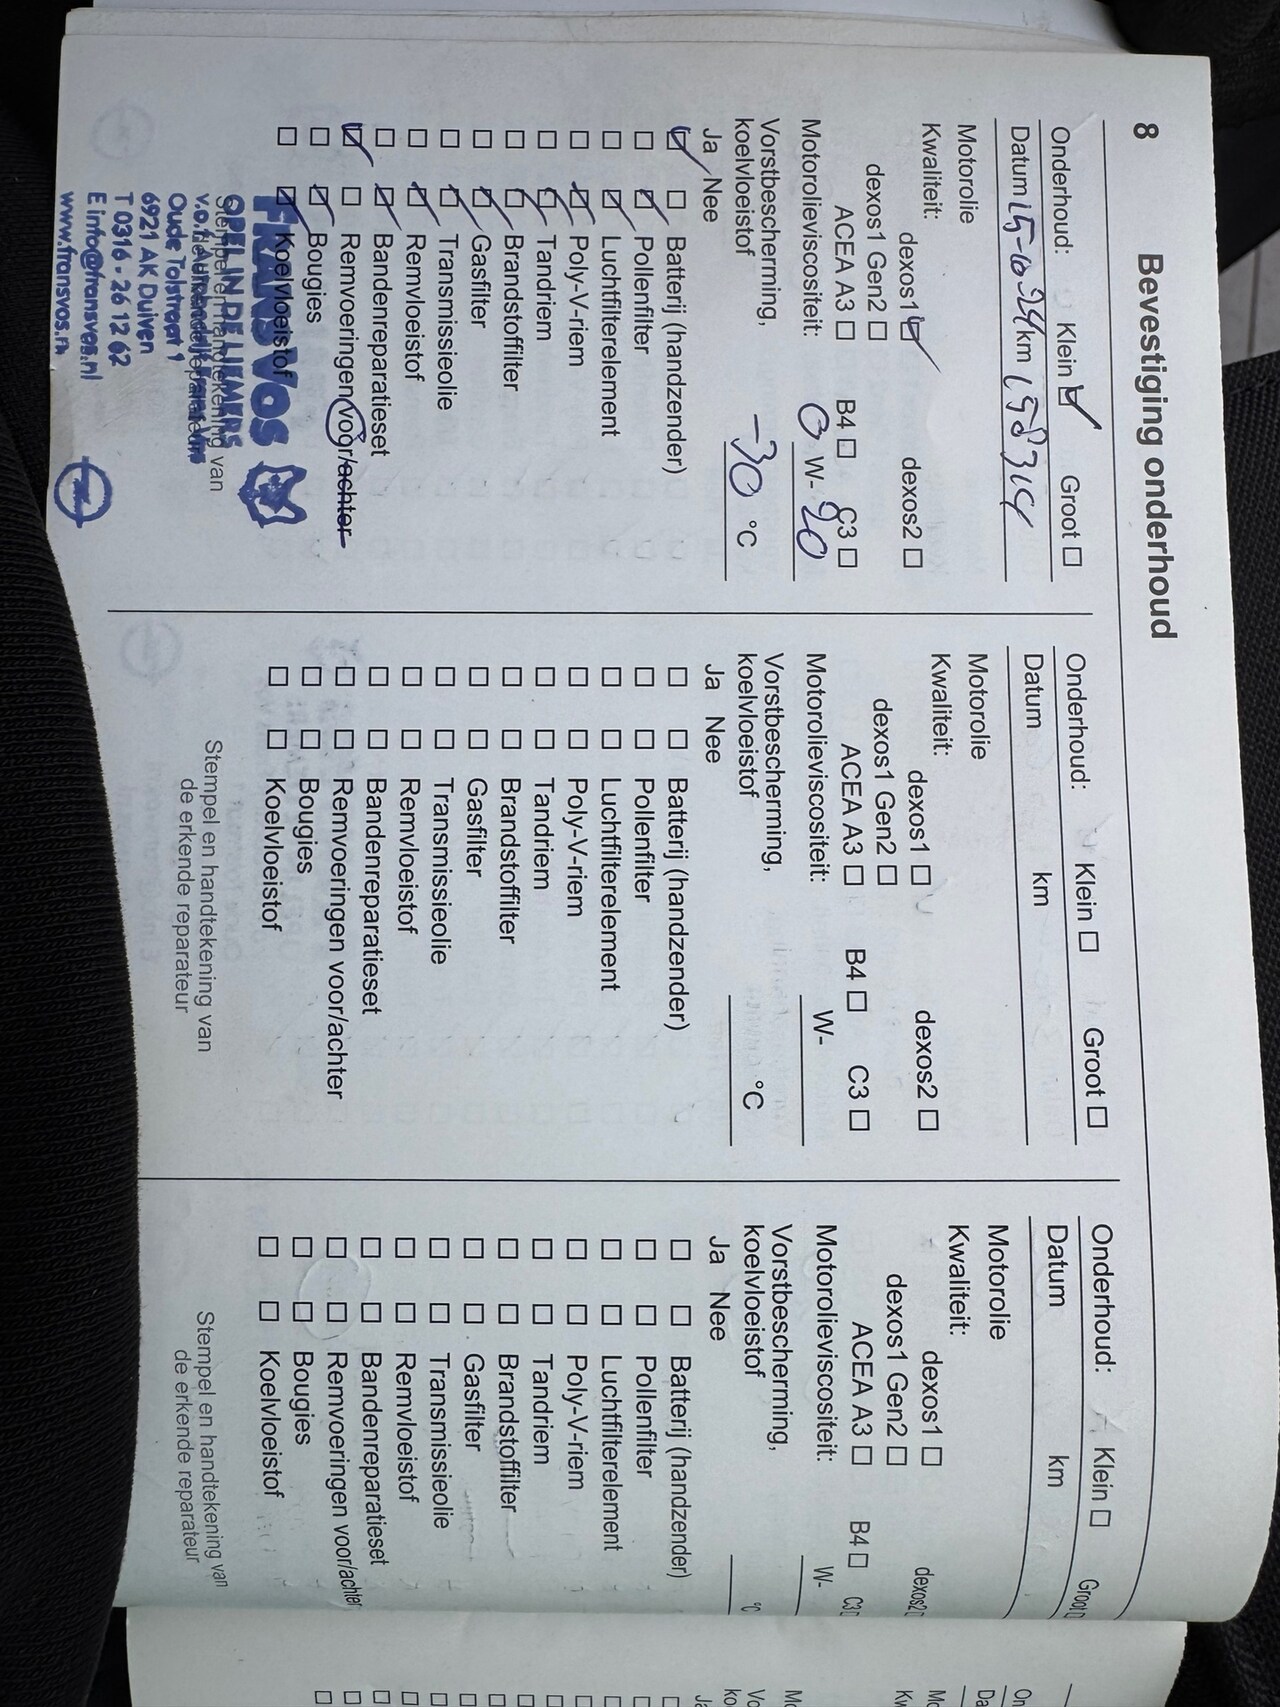 8 Bevestiging onderhoud
Onderhoud: Klein ☑ Groot ☐
Datum 15-10-24 km 158314
Motorolie
Kwaliteit: dexos1 ☑ dexos2 ☐
dexos1 Gen2 ☐
ACEA A3 ☐ B4 ☐ C3 ☐
Motorolieviscositeit: 0 W- 20
Vorstbescherming,
koelvloeistof -30 °C
Ja Nee
☑ ☐ Batterij (handzender)
☐ ☑ Pollenfilter
☐ ☑ Luchtfilterelement
☐ ☑ Poly-V-riem
☐ ☑ Tandriem
☐ ☑ Brandstoffilter
☐ ☑ Gasfilter
☐ ☑ Transmissieolie
☐ ☑ Remvloeistof
☐ ☑ Bandenreparatieset
☑ ☐ Remvoeringen voor/achter
☐ ☑ Bougies
☐ ☑ Koelvloeistof
Stempel en handtekening van
de erkende reparateur
FRANS VOS
OPEL IN DE LIEMERS
Oude Tolstraat 1
6921 AK Duiven
T 0316 - 26 12 62
E info@fransvos.nl
www.fransvos.n
Onderhoud: Klein ☐ Groot ☐
Datum km
Motorolie
Kwaliteit: dexos1 ☐ dexos2 ☐
dexos1 Gen2 ☐
ACEA A3 ☐ B4 ☐ C3 ☐
Motorolieviscositeit: W-
Vorstbescherming,
koelvloeistof °C
Ja Nee
☐ ☐ Batterij (handzender)
☐ ☐ Pollenfilter
☐ ☐ Luchtfilterelement
☐ ☐ Poly-V-riem
☐ ☐ Tandriem
☐ ☐ Brandstoffilter
☐ ☐ Gasfilter
☐ ☐ Transmissieolie
☐ ☐ Remvloeistof
☐ ☐ Bandenreparatieset
☐ ☐ Remvoeringen voor/achter
☐ ☐ Bougies
☐ ☐ Koelvloeistof
Stempel en handtekening van
de erkende reparateur
Onderhoud: Klein ☐ Groot ☐
Datum km
Motorolie
Kwaliteit: dexos1 ☐ dexos2 ☐
dexos1 Gen2 ☐
ACEA A3 ☐ B4 ☐ C3 ☐
Motorolieviscositeit: W-
Vorstbescherming,
koelvloeistof °C
Ja Nee
☐ ☐ Batterij (handzender)
☐ ☐ Pollenfilter
☐ ☐ Luchtfilterelement
☐ ☐ Poly-V-riem
☐ ☐ Tandriem
☐ ☐ Brandstoffilter
☐ ☐ Gasfilter
☐ ☐ Transmissieolie
☐ ☐ Remvloeistof
☐ ☐ Bandenreparatieset
☐ ☐ Remvoeringen voor/achter
☐ ☐ Bougies
☐ ☐ Koelvloeistof
Stempel en handtekening van
de erkende reparateur
On
Da
Mo
Kw
Mo
Vo
ko
Ja